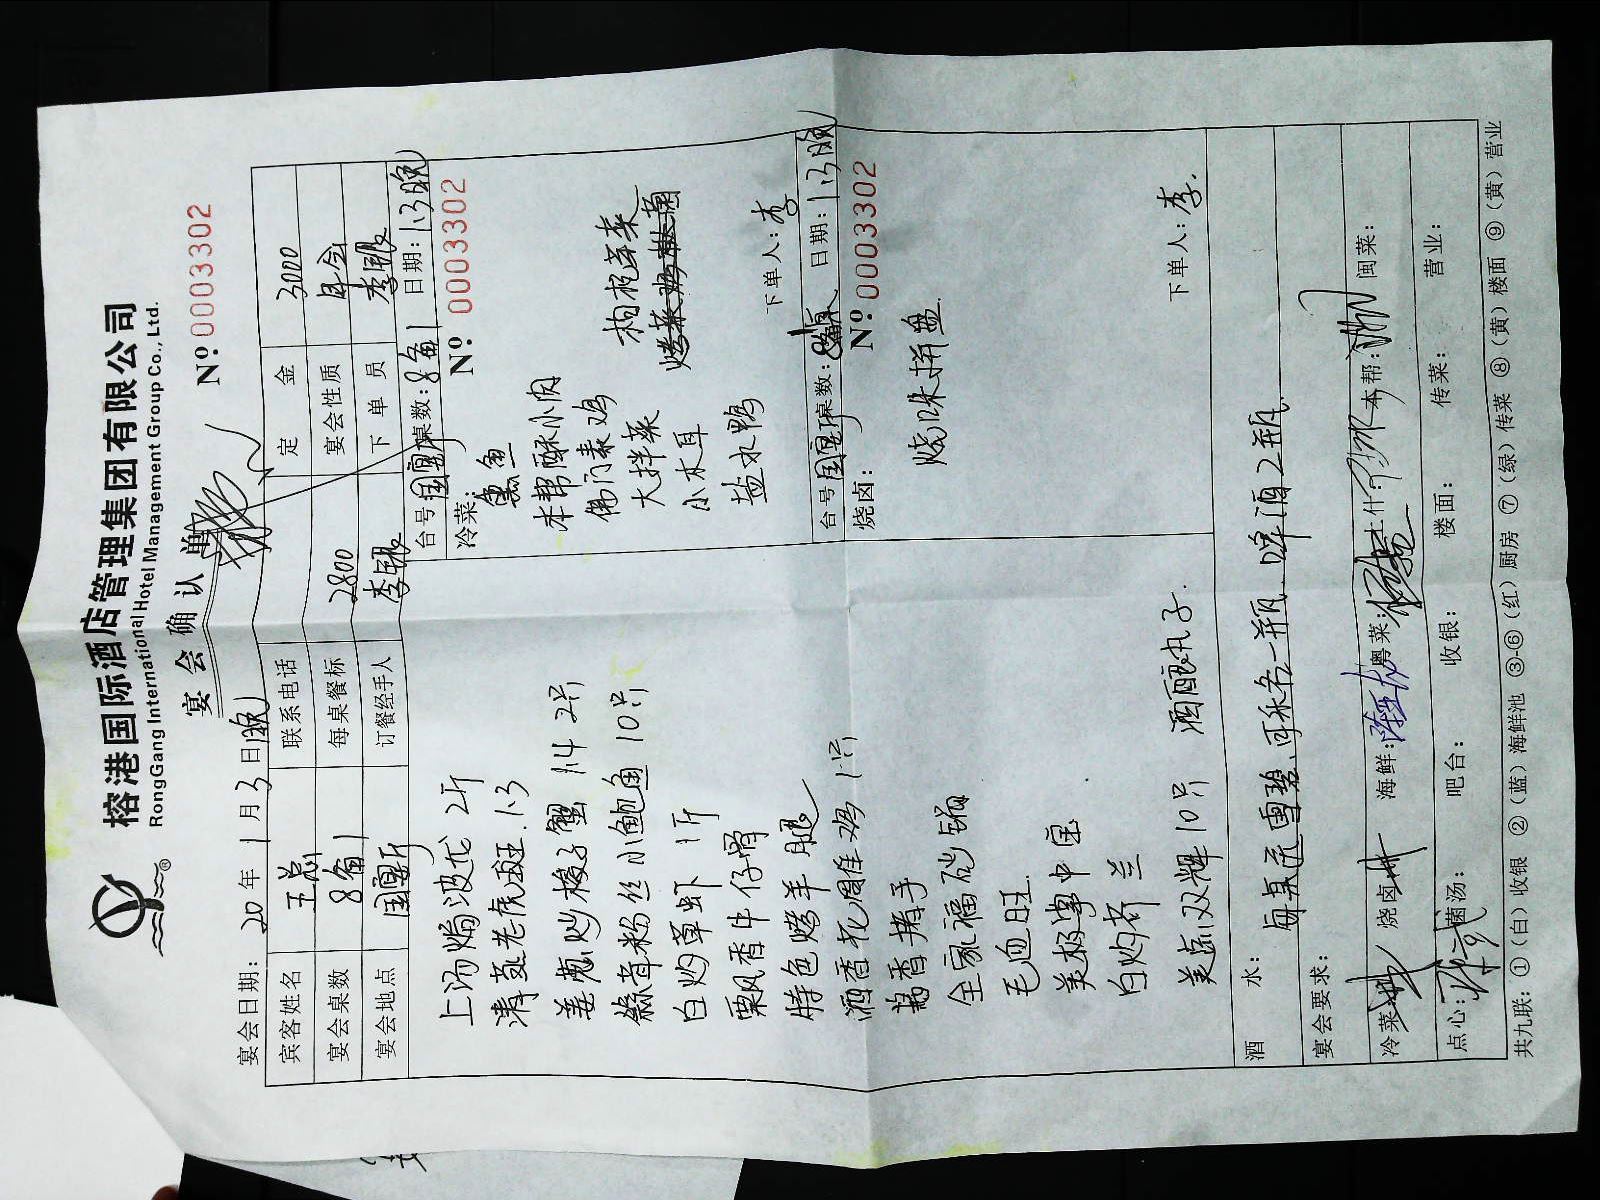 榕港国际酒店管理集团有限公司
RongGang International Hotel Management Group Co., Ltd.
宴会确认单
№ 0003302
宴会日期: 20 年 1 月 3 日晚
宾客姓名 王总 联系电话 定金 3000
宴会桌数 8备1 每桌餐标 2800 宴会性质 年会
宴会地点 国宴厅 订餐经手人 李 下单员 李
上汤焗波龙 2斤
清蒸老虎斑 1.3
姜葱炒梭子蟹 2只
蒜蓉粉丝小鲍鱼 10只
白灼草虾 1斤
粟风香牛仔骨
特色烤羊腿
酒香花雕鸡 1只
藕香猪手
全家福砂锅
毛血旺
美极掌中宝
白灼芥兰
美点双辉 10只 酒酿丸子.
台号 国宴厅 桌数: 8备1 日期: 1.3晚
冷菜: № 0003302
熏鱼
本帮酥小肉
佛门素鸡
大拌菜 枸杞芽菜
小木耳
盐水鸭
下单人: 李
台号 国宴厅 桌数: 日期: 1.3晚
烧卤: № 0003302
烧味拼盘
下单人: 李.
酒水: 每桌送雪碧.可乐各一瓶.啤酒2瓶.
宴会要求:
冷菜: 烧卤: 海鲜: 粤菜: 上什: 本帮: 闽菜:
点心: 菌汤: 吧台: 收银: 楼面: 传菜: 营业:
共九联: ①(白)收银 ②(蓝)海鲜池 ③-⑥(红)厨房 ⑦(绿)传菜 ⑧(黄)楼面 ⑨(黄)营业